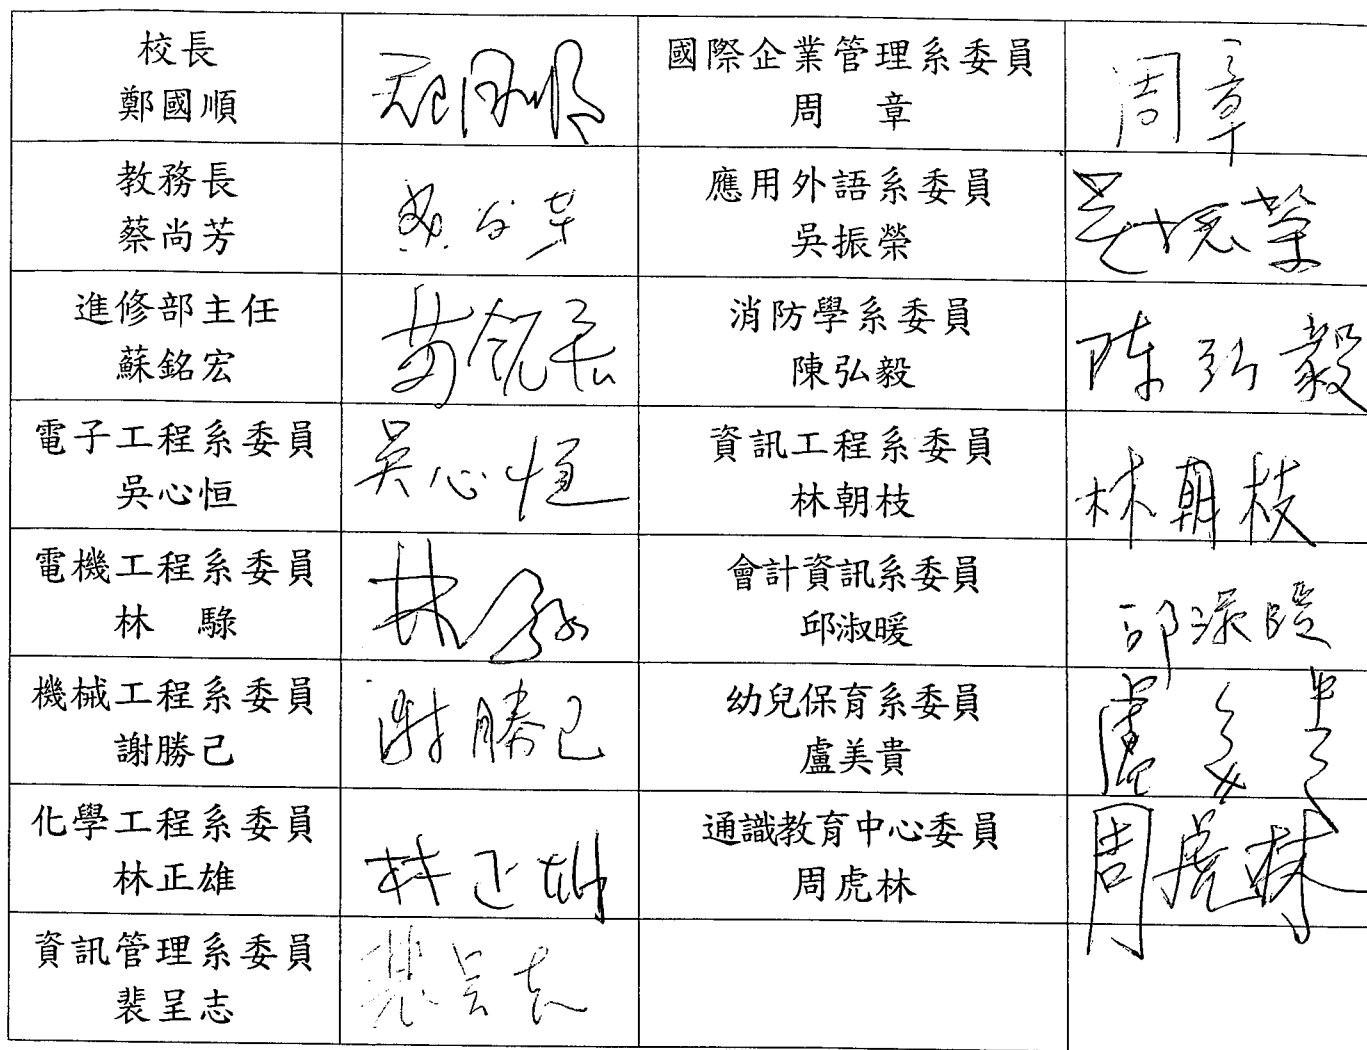 校長
鄭國順
鄭國順
國際企業管理系委員
周 章
周章
教務長
蔡尚芳
蔡尚芳
應用外語系委員
吳振榮
吳振榮
進修部主任
蘇銘宏
蘇銘宏
消防學系委員
陳弘毅
陳弘毅
電子工程系委員
吳心恒
吳心恒
資訊工程系委員
林朝枝
林朝枝
電機工程系委員
林 騄
林騄
會計資訊系委員
邱淑暖
邱淑暖
機械工程系委員
謝勝己
謝勝己
幼兒保育系委員
盧美貴
盧美貴
化學工程系委員
林正雄
林正雄
通識教育中心委員
周虎林
周虎林
資訊管理系委員
裴呈志
裴呈志